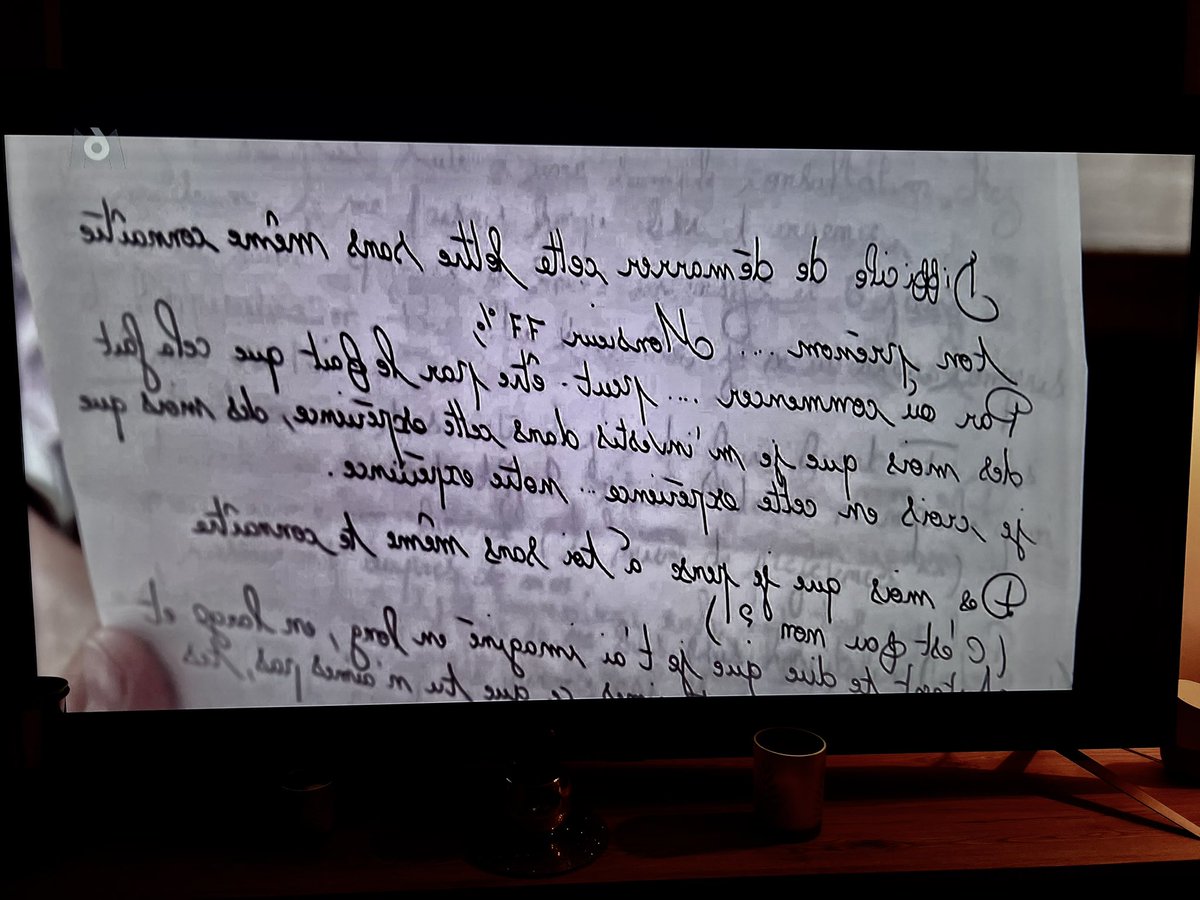 M6
Difficile de démarrer cette lettre sans même connaître
ton prénom ... Monsieur 77%
Par où commencer ... peut-être par le fait que cela fait
des mois que je m'investis dans cette expérience, des mois que
je crois en cette expérience... notre expérience.
Des mois que je pense à toi sans même te connaître
(C'est fou non ?!)
te dire que je t'ai imaginé en long, en large et
ce que tu n'aimes pas, tes